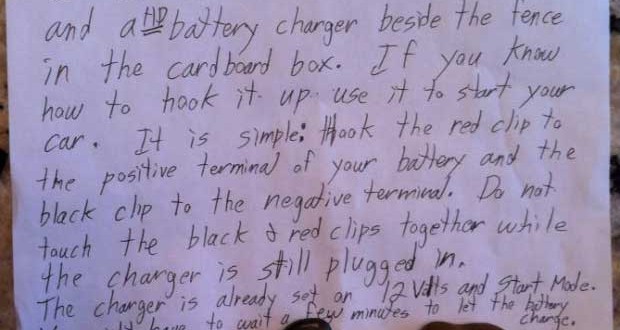 and a HD battery charger beside the fence
in the cardboard box. If you know
how to hook it up use it to start your
car. It is simple: Hook the red clip to
the positive terminal of your battery and the
black clip to the negative terminal. Do not
touch the black & red clips together while
the charger is still plugged in.
The charger is already set on 12 Volts and Start Mode.
have to wait a few minutes to let the battery
charge.